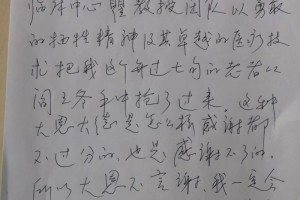 临床中心瞿教授团队以勇敢
的牺牲精神及其卓越的医疗技
术把我这个年过七旬的老者从
阎王爷手中抢了过来。这种
大恩大德是怎么样感谢都
不过分的,也是感谢不了的,
所以大恩不言谢,我一定会